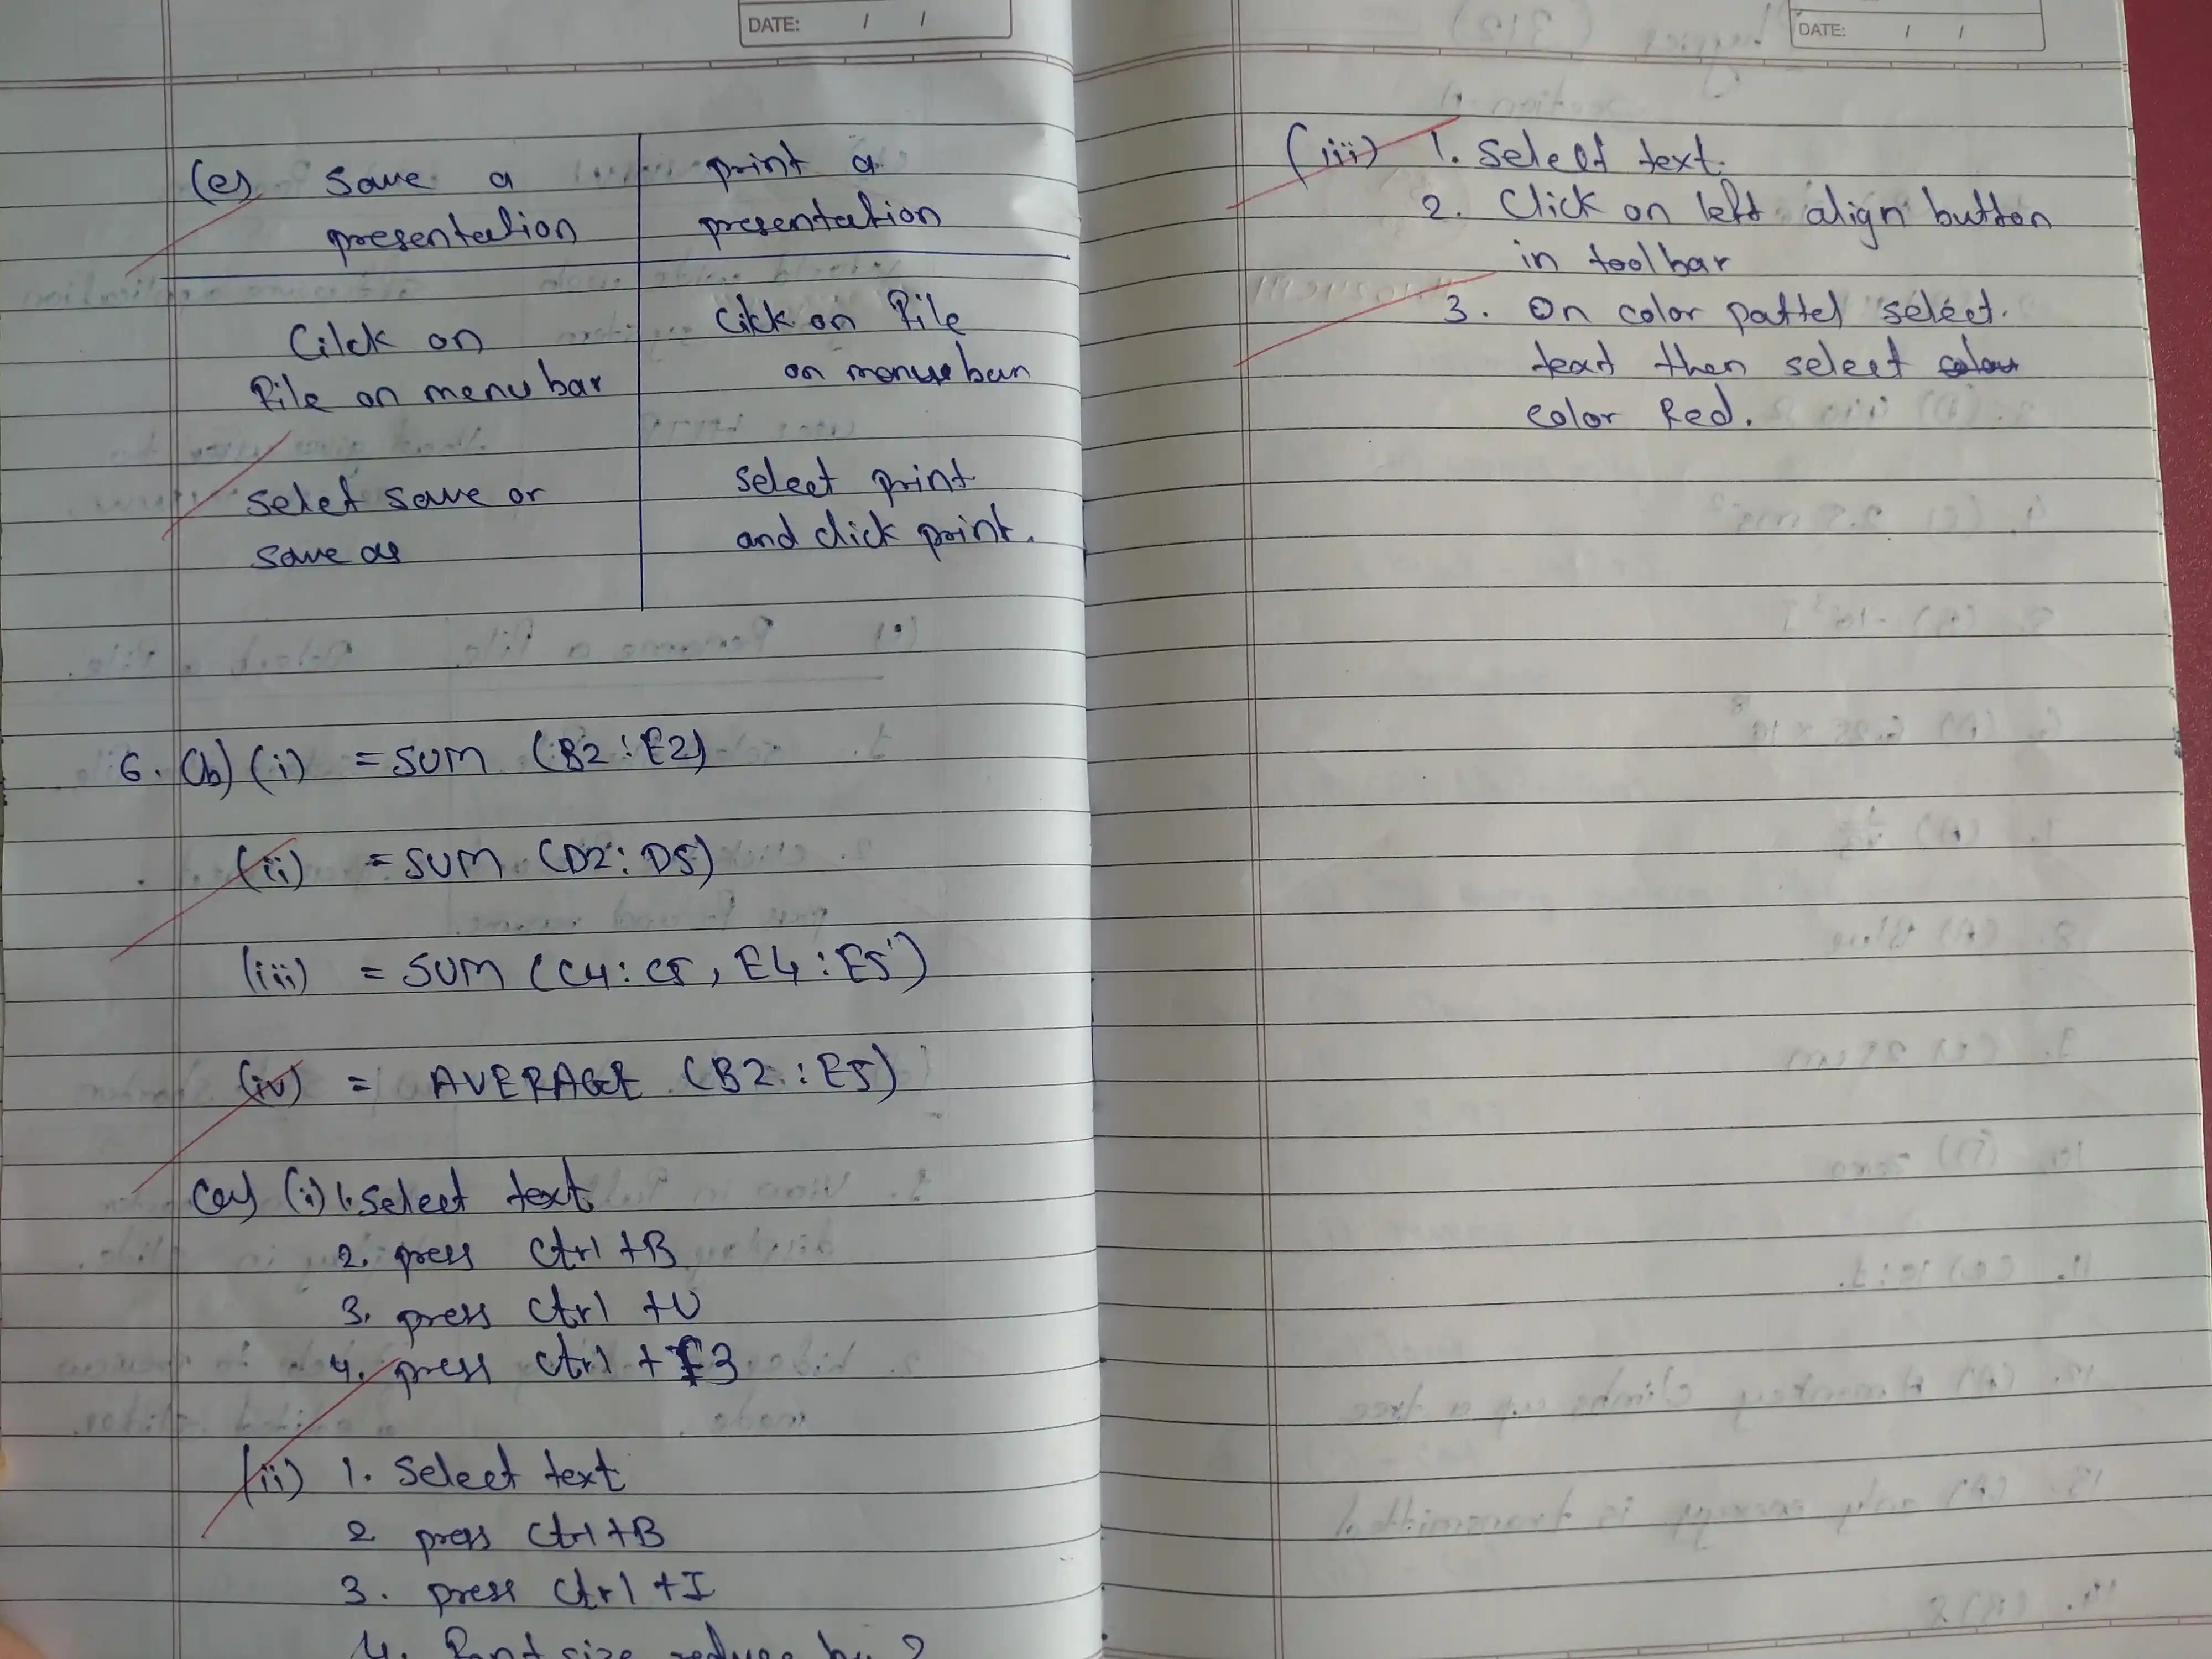 DATE: / /
(e) Save a presentation | print a presentation
Cilck on | Cilck on File
File on menu bar | on menu bar
Selet save or | select print
save as | and click print.
6. (b) (i) = SUM (B2:E2)
(ii) = SUM (D2:D5)
(iii) = SUM (C4:C5, E4:E5)
(iv) = AVERAGE (B2:E5)
(a) (i) 1. Select text
2. press Ctrl +B
3. press Ctrl +U
4. press Ctrl + F3
(ii) 1. Select text
2 press Ctrl +B
3. press Ctrl +I
4. Font size reduce by 2
DATE: / /
(iii) 1. Select text.
2. Click on left align button
in toolbar
3. On color pattel select.
text then select
color Red.